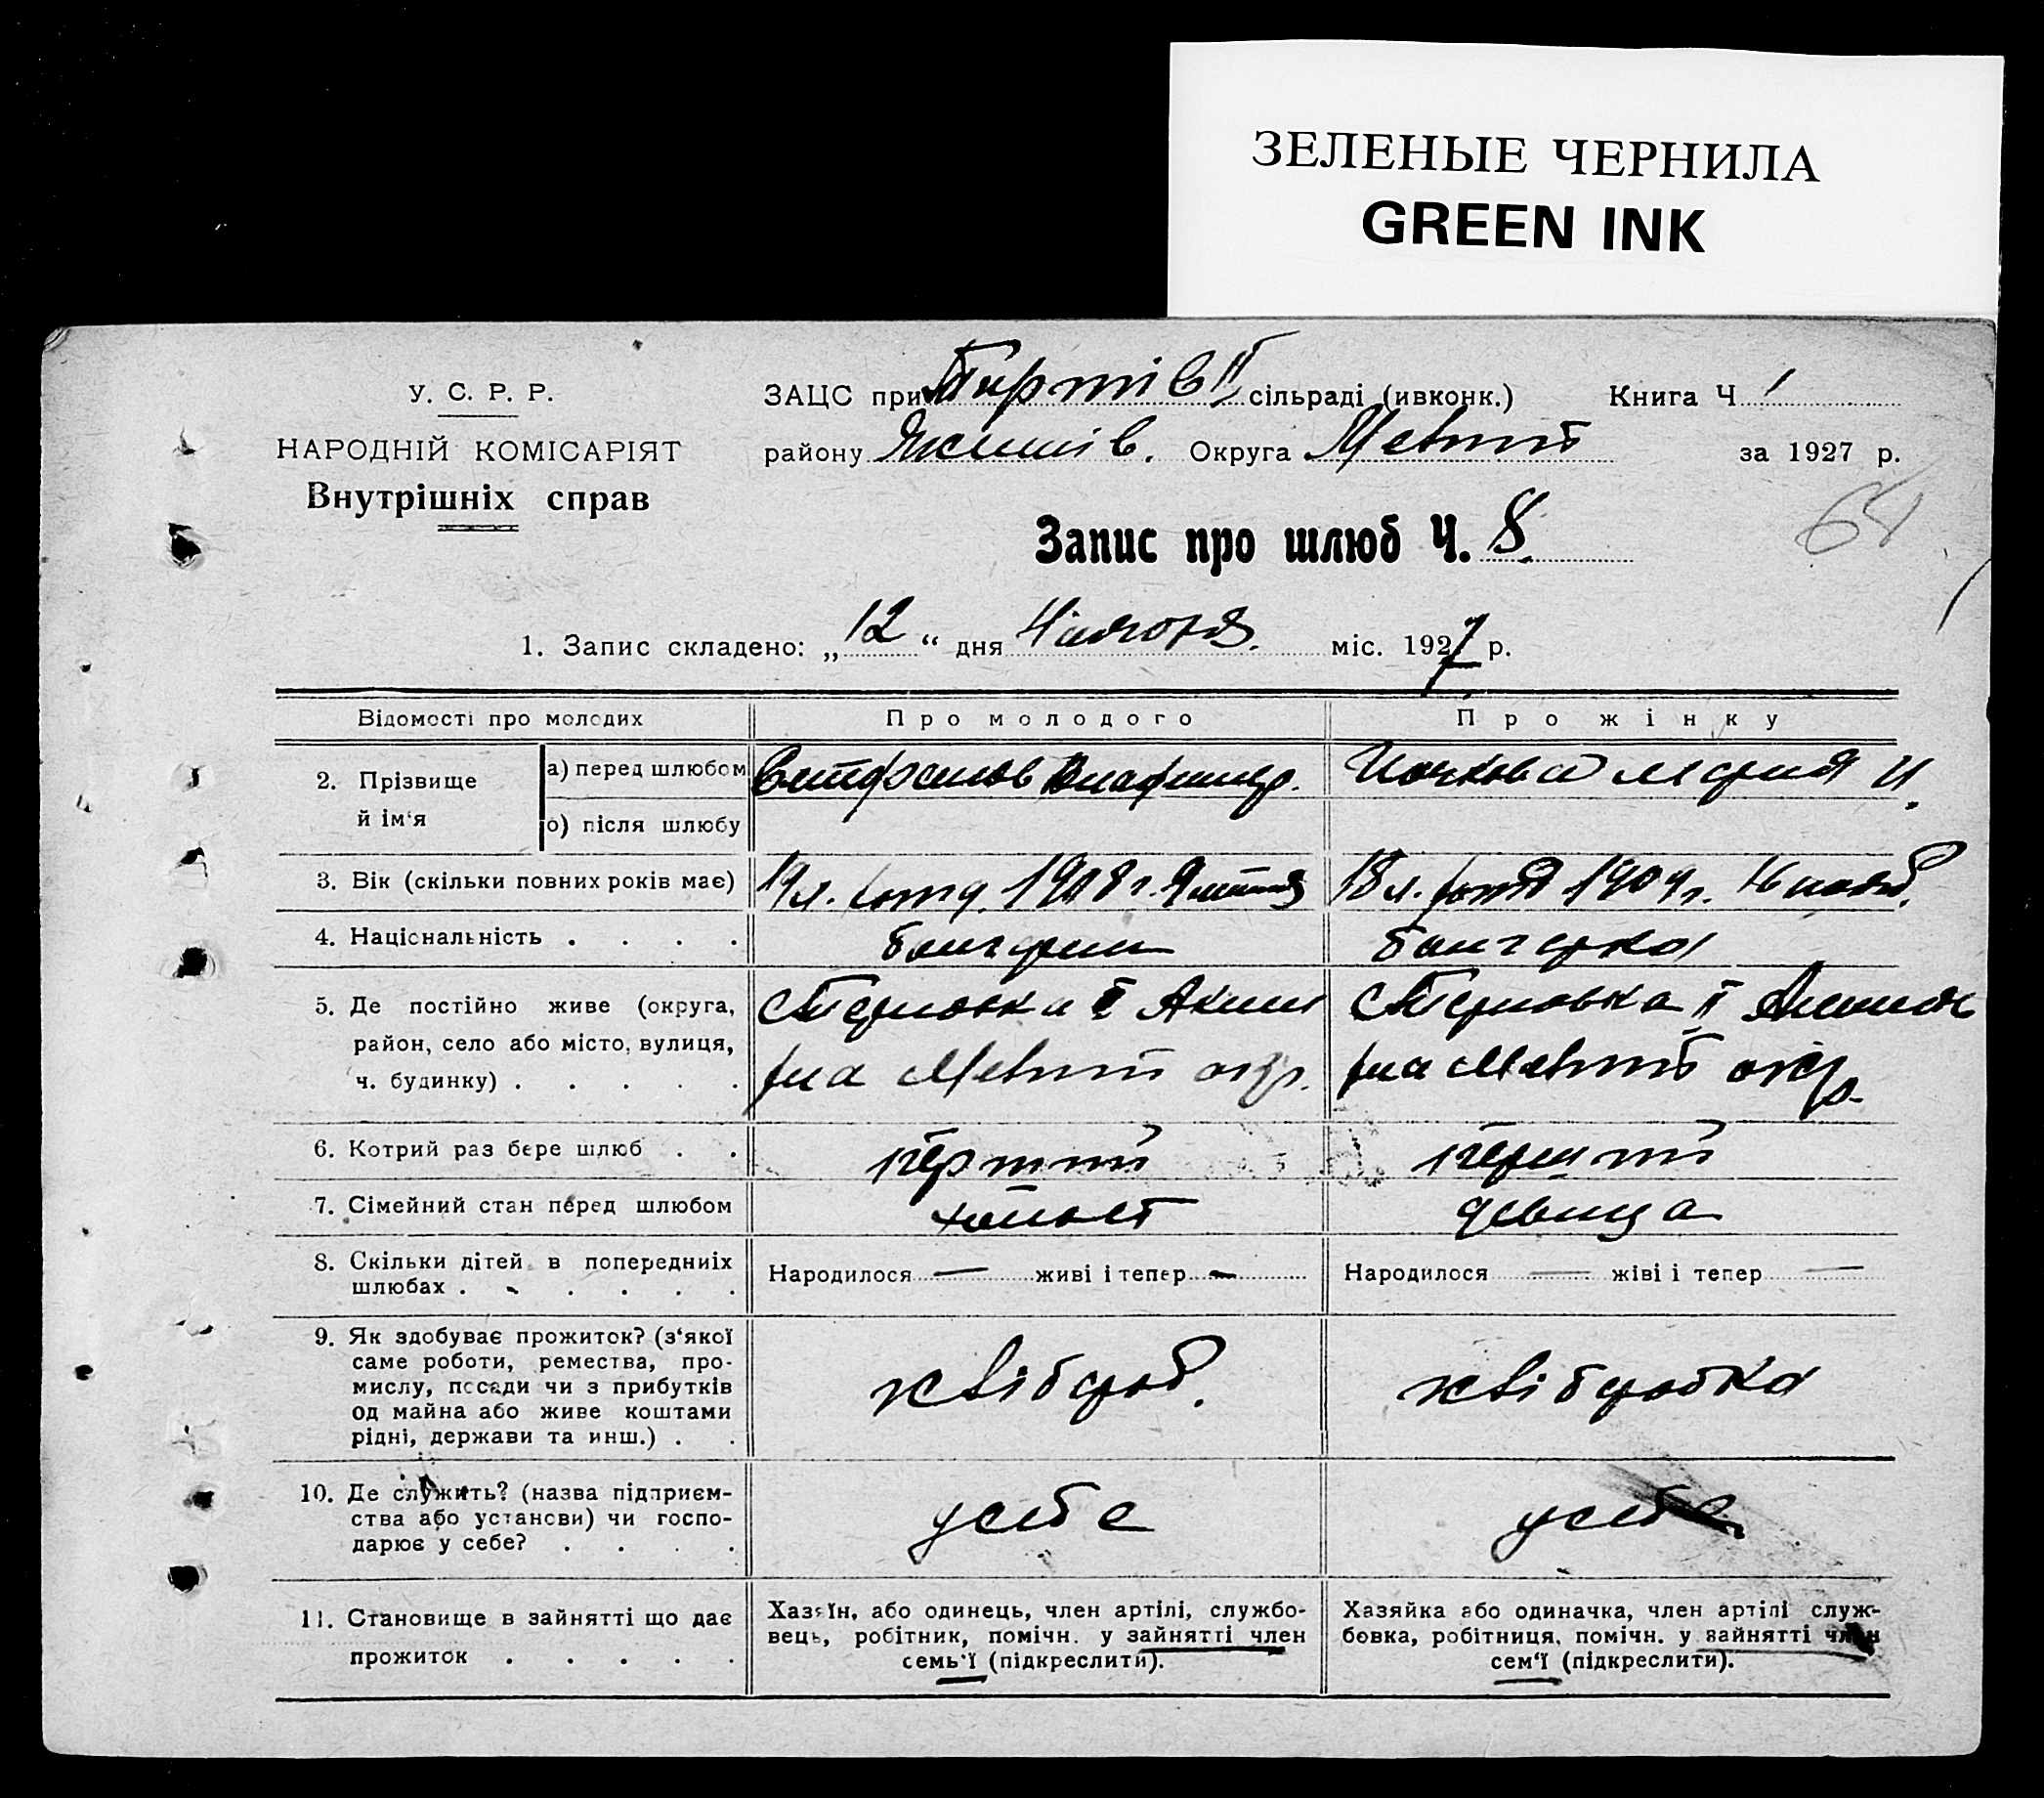 ЗЕЛЕНЫЕ ЧЕРНИЛА
GREEN INK
У. С. Р. Р.
НАРОДНІЙ КОМІСАРІЯТ
Внутрішніх справ
ЗАЦС при сільраді (ивконк.) Книга Ч. 1
району Якимів. Округа за 1927 р.
64
Запис про шлюб Ч. 8
1. Запис складено: „ 12 “ дня міс. 1927 р.
Відомості про молодих Про молодого Про жінку
2. Прізвище й ім‘я
а) перед шлюбом
о) після шлюбу
3. Вік (скільки повних років має) 19 л. 1908 г. 18 л. 1909 г. 16 нояб.
4. Національність . . . . болгарин болгарка
5. Де постійно живе (округа,
район, село або місто, вулиця,
ч. будинку) . . . . .
II Аким II
окр. окр.
6. Котрий раз бере шлюб . . перший перший
7. Сімейний стан перед шлюбом холост девица
8. Скільки дітей в попередниіх
шлюбах . . . . . .
Народилося — живі і тепер — Народилося — жіві і тепер —
9. Як здобуває прожиток? (з‘якої
саме роботи, ремества, про-
мислу, посади чи з прибутків
од майна або живе коштами
рідні, держави та инш.) . .
хлібороб. хліборобка
10. Де служить? (назва підприєм-
ства або установи) чи госпо-
дарює у себе? . . . .
у себе у себе
11. Становище в зайнятті що дає
прожиток . . . . .
Хазяїн, або одинець, член артілі, службо-
вець, робітник, помічн. у зайнятті член
семь‘ї (підкреслити).
Хазяйка або одиначка, член артілі служ-
бовка, робітниця, помічн. у зайнятті член
сем‘ї (підкреслити).